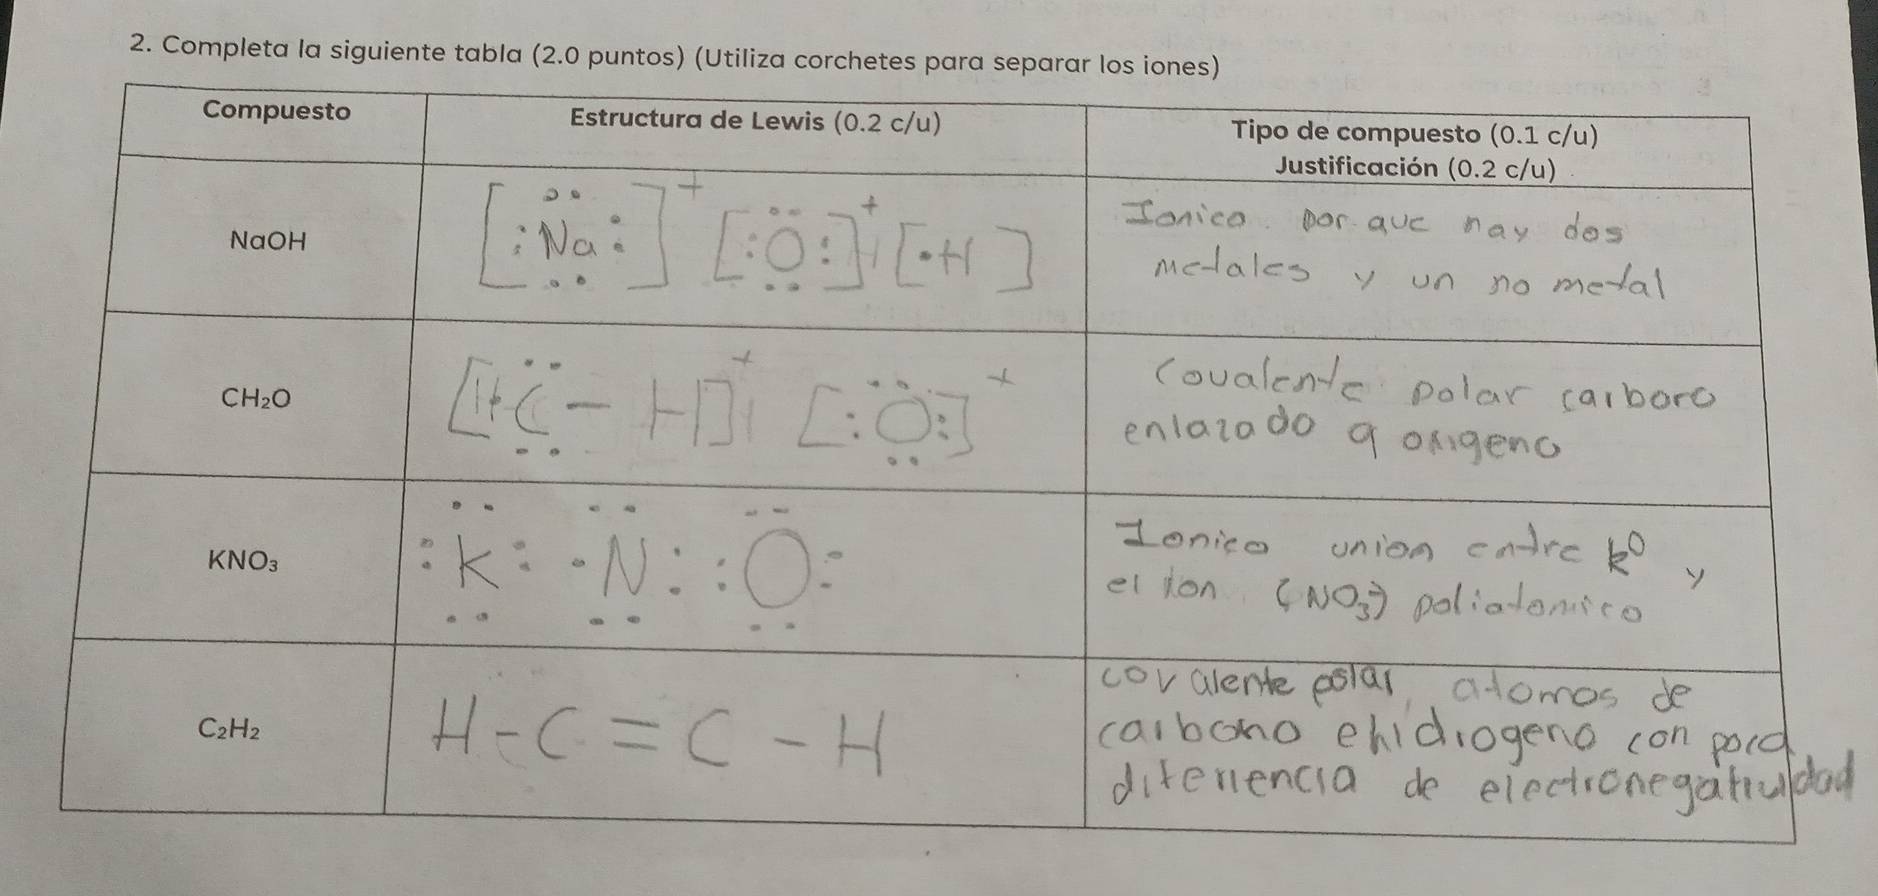 2. Completa la siguiente tabla (2.0 puntos) (Utiliza corchetes para separar los iones)
Compuesto
Estructura de Lewis (0.2 c/u)
Tipo de compuesto (0.1 c/u)
Justificación (0.2 c/u)
NaOH
[:Na:]+ [:O:]+ [·H]
Ionico por que hay dos
metales y un no metal
CH₂O
[H·C-H]+ [:O:]+
Covalente polar carbono
enlazado a oxigeno
KNO₃
:K: ·N: :O:
Ionico union entre K⁰ y
el ion (NO₃⁻) poliatomico
C₂H₂
H-C=C-H
covalente polar, atomos de
carbono e hidrogeno con poca
diferencia de electronegatividad